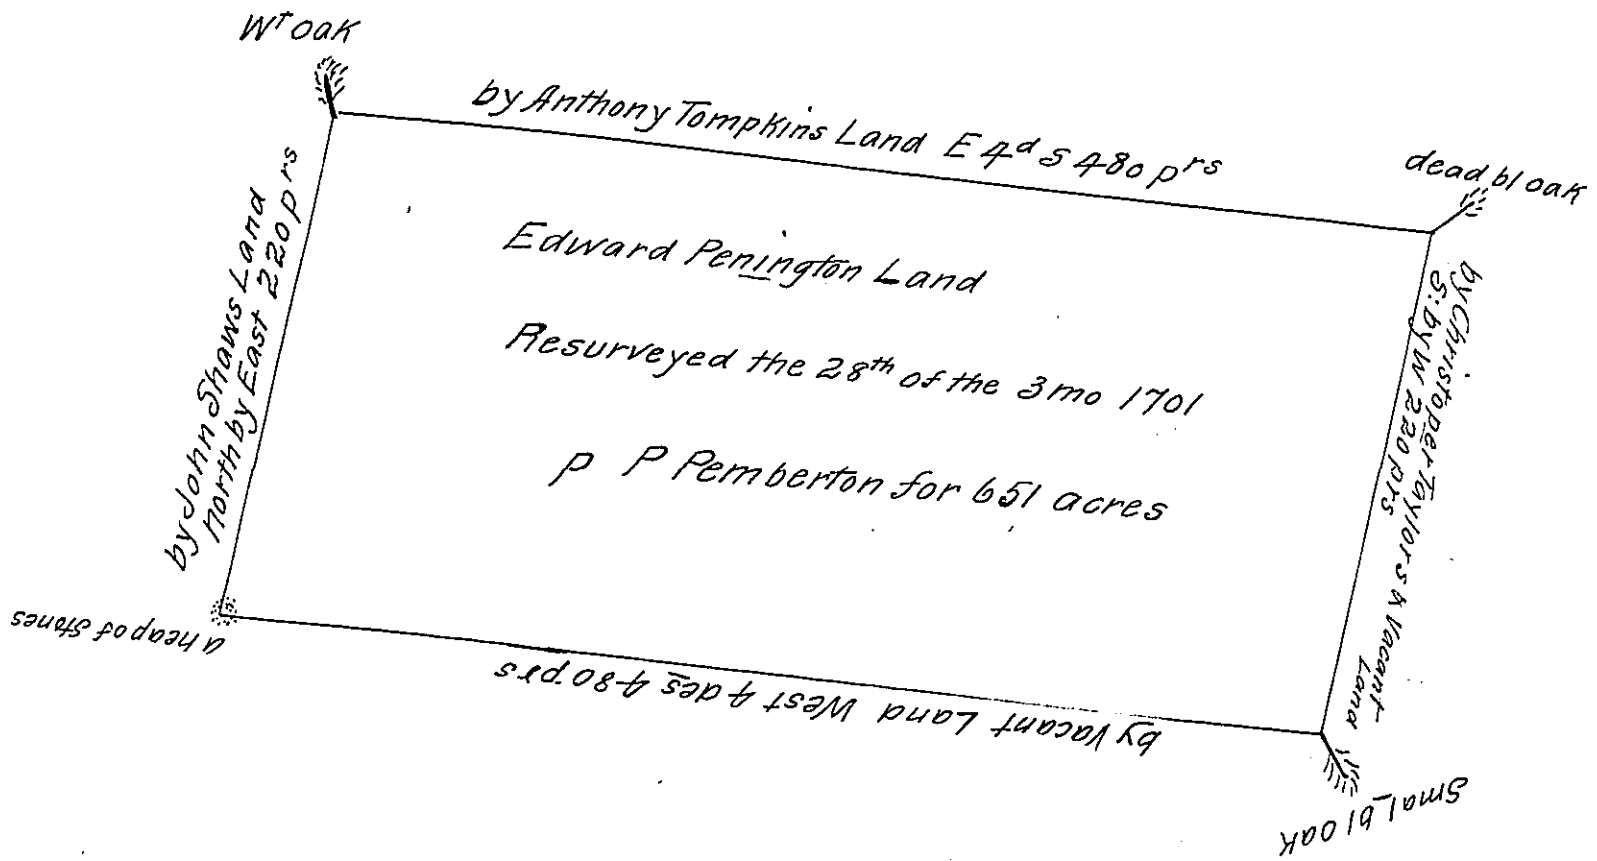 Wt oak
by Anthony Tompkins Land E 4d S 480 prs
dead bl oak
by John Shaws Land
north by East 220 prs
Edward Penington Land
Resurveyed the 28th of the 3 mo 1701
p P Pemberton for 651 acres
by Christoper Taylors & Vacant
Land
S: by W 220 prs
a heap of Stones
by Vacant Land West 4 des 480 prs
Smal bl oak